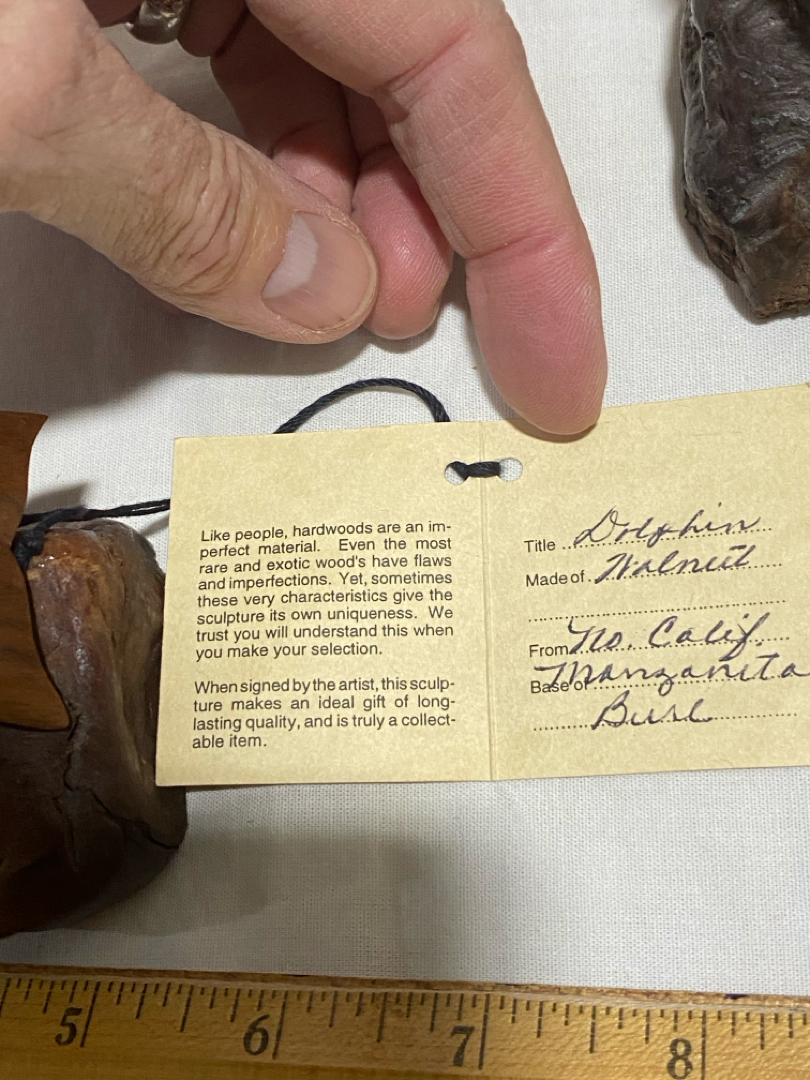 Like people, hardwoods are an im-
perfect material. Even the most
rare and exotic wood's have flaws
and imperfections. Yet, sometimes
these very characteristics give the
sculpture its own uniqueness. We
trust you will understand this when
you make your selection.
When signed by the artist, this sculp-
ture makes an ideal gift of long-
lasting quality, and is truly a collect-
able item.
Title Dolphin
Made of Walnut
From No. Calif.
Base of Manzanita
Burl
5 6 7 8